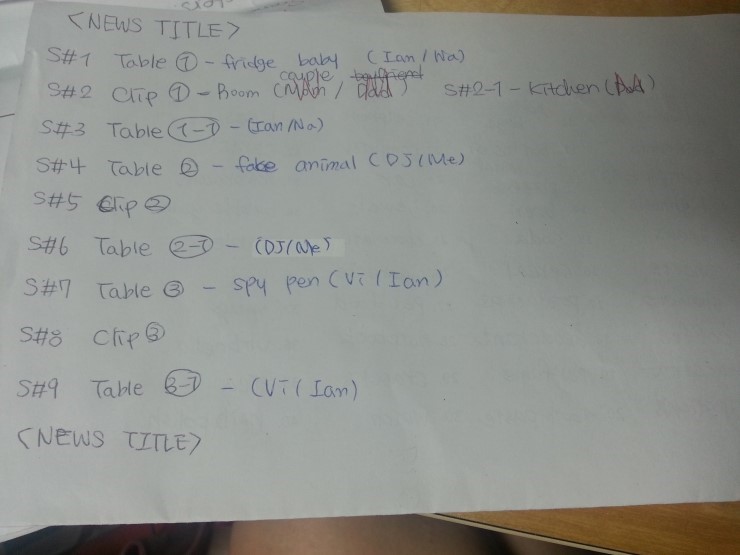 <NEWS TITLE>
S#1 Table ① - fridge baby (Ian/Na)
S#2 Clip ① - Room couple (Man / Dad) S#2-1 - Kitchen (Dad)
S#3 Table (1-1) - (Ian/Na)
S#4 Table ② - fake animal (DJ/Me)
S#5 Clip ②
S#6 Table (2-1) - (DJ/Me)
S#7 Table ③ - spy pen (Vi/Ian)
S#8 Clip ③
S#9 Table (3-1) - (Vi/Ian)
<NEWS TITLE>